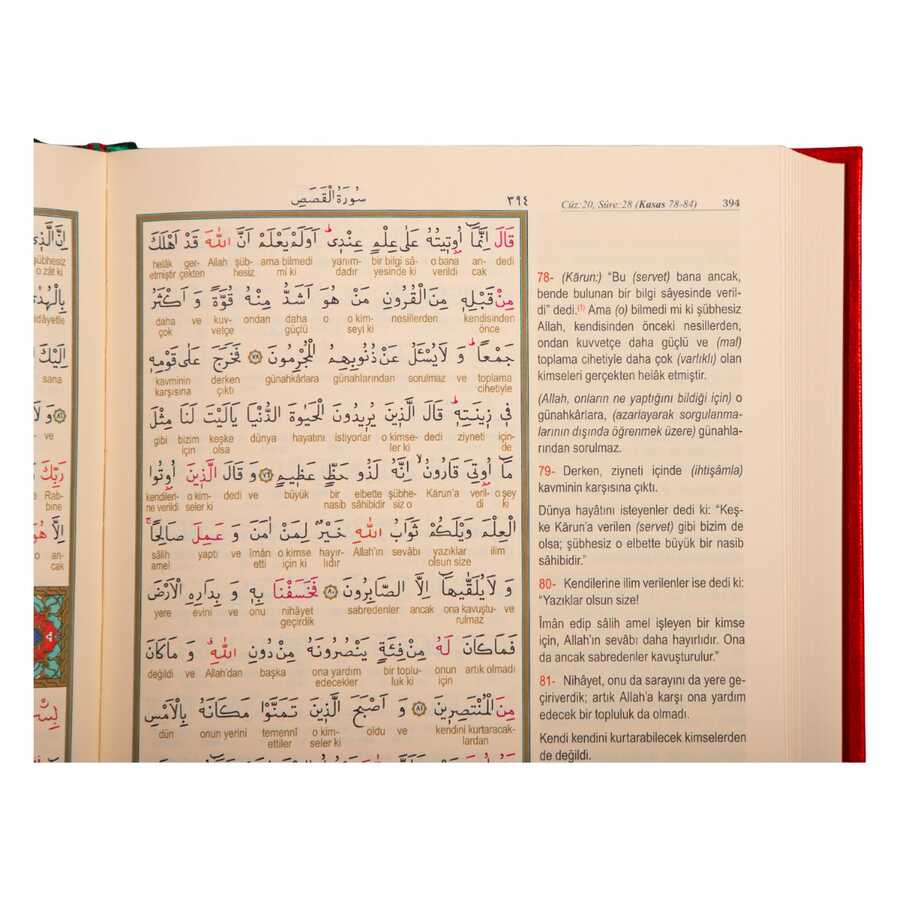 سُورَةُ الْقَصَصِ
٣٩٤
قَالَ اِنَّمَٓا اُو۫ت۪يتُهُ عَلٰى عِلْمٍ عِنْد۪يۜ اَوَلَمْ يَعْلَمْ اَنَّ اللّٰهَ قَدْ اَهْلَكَ
dedi an- o bana bir bilgi sâ- yanım- ama bilmedi Allah şüb- helâk ger-
cak verildi yesinde ki dadır mi ki hesiz etmiştir çekten
مِنْ قَبْلِه۪ مِنَ الْقُرُونِ مَنْ هُوَ اَشَدُّ مِنْهُ قُوَّةً وَ اَكْثَرُ
kendisinden nesillerden o kim- o daha ondan kuv- ve daha
önce seyi ki güçlü vetçe çok
جَمْعاًۜ وَ لَا يُسْـَٔلُ عَنْ ذُنُوبِهِمُ الْمُجْرِمُونَ ﴿٧٨﴾ فَخَرَجَ عَلٰى قَوْمِه۪
toplama ve sorulmaz günahlarından günahkârlara derken kavminin
cihetiyle çıktı karşısına
ف۪ي ز۪ينَتِه۪ۜ قَالَ الَّذ۪ينَ يُر۪يدُونَ الْحَيٰوةَ الدُّنْيَا يَالَيْتَ لَنَا مِثْلَ
için- ziyneti dedi o kimse- istiyorlar hayatını dünya keşke bizim gibi
de ler ki olsa
مَٓا اُو۫تِيَ قَارُونُۙ اِنَّهُ لَذُو حَظٍّ عَظ۪يمٍ ﴿٧٩﴾ وَ قَالَ الَّذ۪ينَ اُو۫تُوا
o şey veril- Kârun'a elbette şübhe- bir büyük ve dedi o kim- kendileri-
ki di siz o nasib sâhibidir seler ki ne verildi
الْعِلْمَ وَيْلَكُمْ ثَوَابُ اللّٰهِ خَيْرٌ لِمَنْ اٰمَنَ وَ عَمِلَ صَالِحاًۚ
ilim yazıklar sevâbı Allah'ın hayır- o kimse îmân ve yaptı sâlih
olsun size lıdır için ki etti amel
وَ لَا يُلَقّٰيهَٓا اِلَّا الصَّابِرُونَ ﴿٨٠﴾ فَخَسَفْنَا بِه۪ وَ بِدَارِهِ الْاَرْضَ
ve ona kavuştu- ancak sabredenler nihâyet onu ve evini yere
rulmaz geçirdik
فَمَا كَانَ لَهُ مِنْ فِئَةٍ يَنْصُرُونَهُ مِنْ دُونِ اللّٰهِۗ وَ مَا كَانَ
artık olmadı onun bir toplu- ona yardım başka Allah'dan ve değildi
için luk ki edecekler
مِنَ الْمُنْتَصِر۪ينَ ﴿٨١﴾ وَ اَصْبَحَ الَّذ۪ينَ تَمَنَّوْا مَكَانَهُ بِالْاَمْسِ
kendini kurtaracak- ve oldu o kim- temennî onun yerini dün
lardan seler ki ettiler
Cüz:20, Sûre:28 (Kasas 78-84) 394
78- (Kârun:) “Bu (servet) bana ancak,
bende bulunan bir bilgi sâyesinde veril-
di” dedi.(1) Ama (o) bilmedi mi ki şübhesiz
Allah, kendisinden önceki nesillerden,
ondan kuvvetçe daha güçlü ve (mal)
toplama cihetiyle daha çok (varlıklı) olan
kimseleri gerçekten helâk etmiştir.
(Allah, onların ne yaptığını bildiği için) o
günahkârlara, (azarlayarak sorgulanma-
larının dışında öğrenmek üzere) günahla-
rından sorulmaz.
79- Derken, ziyneti içinde (ihtişâmla)
kavminin karşısına çıktı.
Dünya hayâtını isteyenler dedi ki: “Keş-
ke Kârun'a verilen (servet) gibi bizim de
olsa; şübhesiz o elbette büyük bir nasib
sâhibidir.”
80- Kendilerine ilim verilenler ise dedi ki:
“Yazıklar olsun size!
Îmân edip sâlih amel işleyen bir kimse
için, Allah'ın sevâbı daha hayırlıdır. Ona
da ancak sabredenler kavuşturulur.”
81- Nihâyet, onu da sarayını da yere ge-
çiriverdik; artık Allah'a karşı ona yardım
edecek bir topluluk da olmadı.
Kendi kendini kurtarabilecek kimselerden
de değildi.